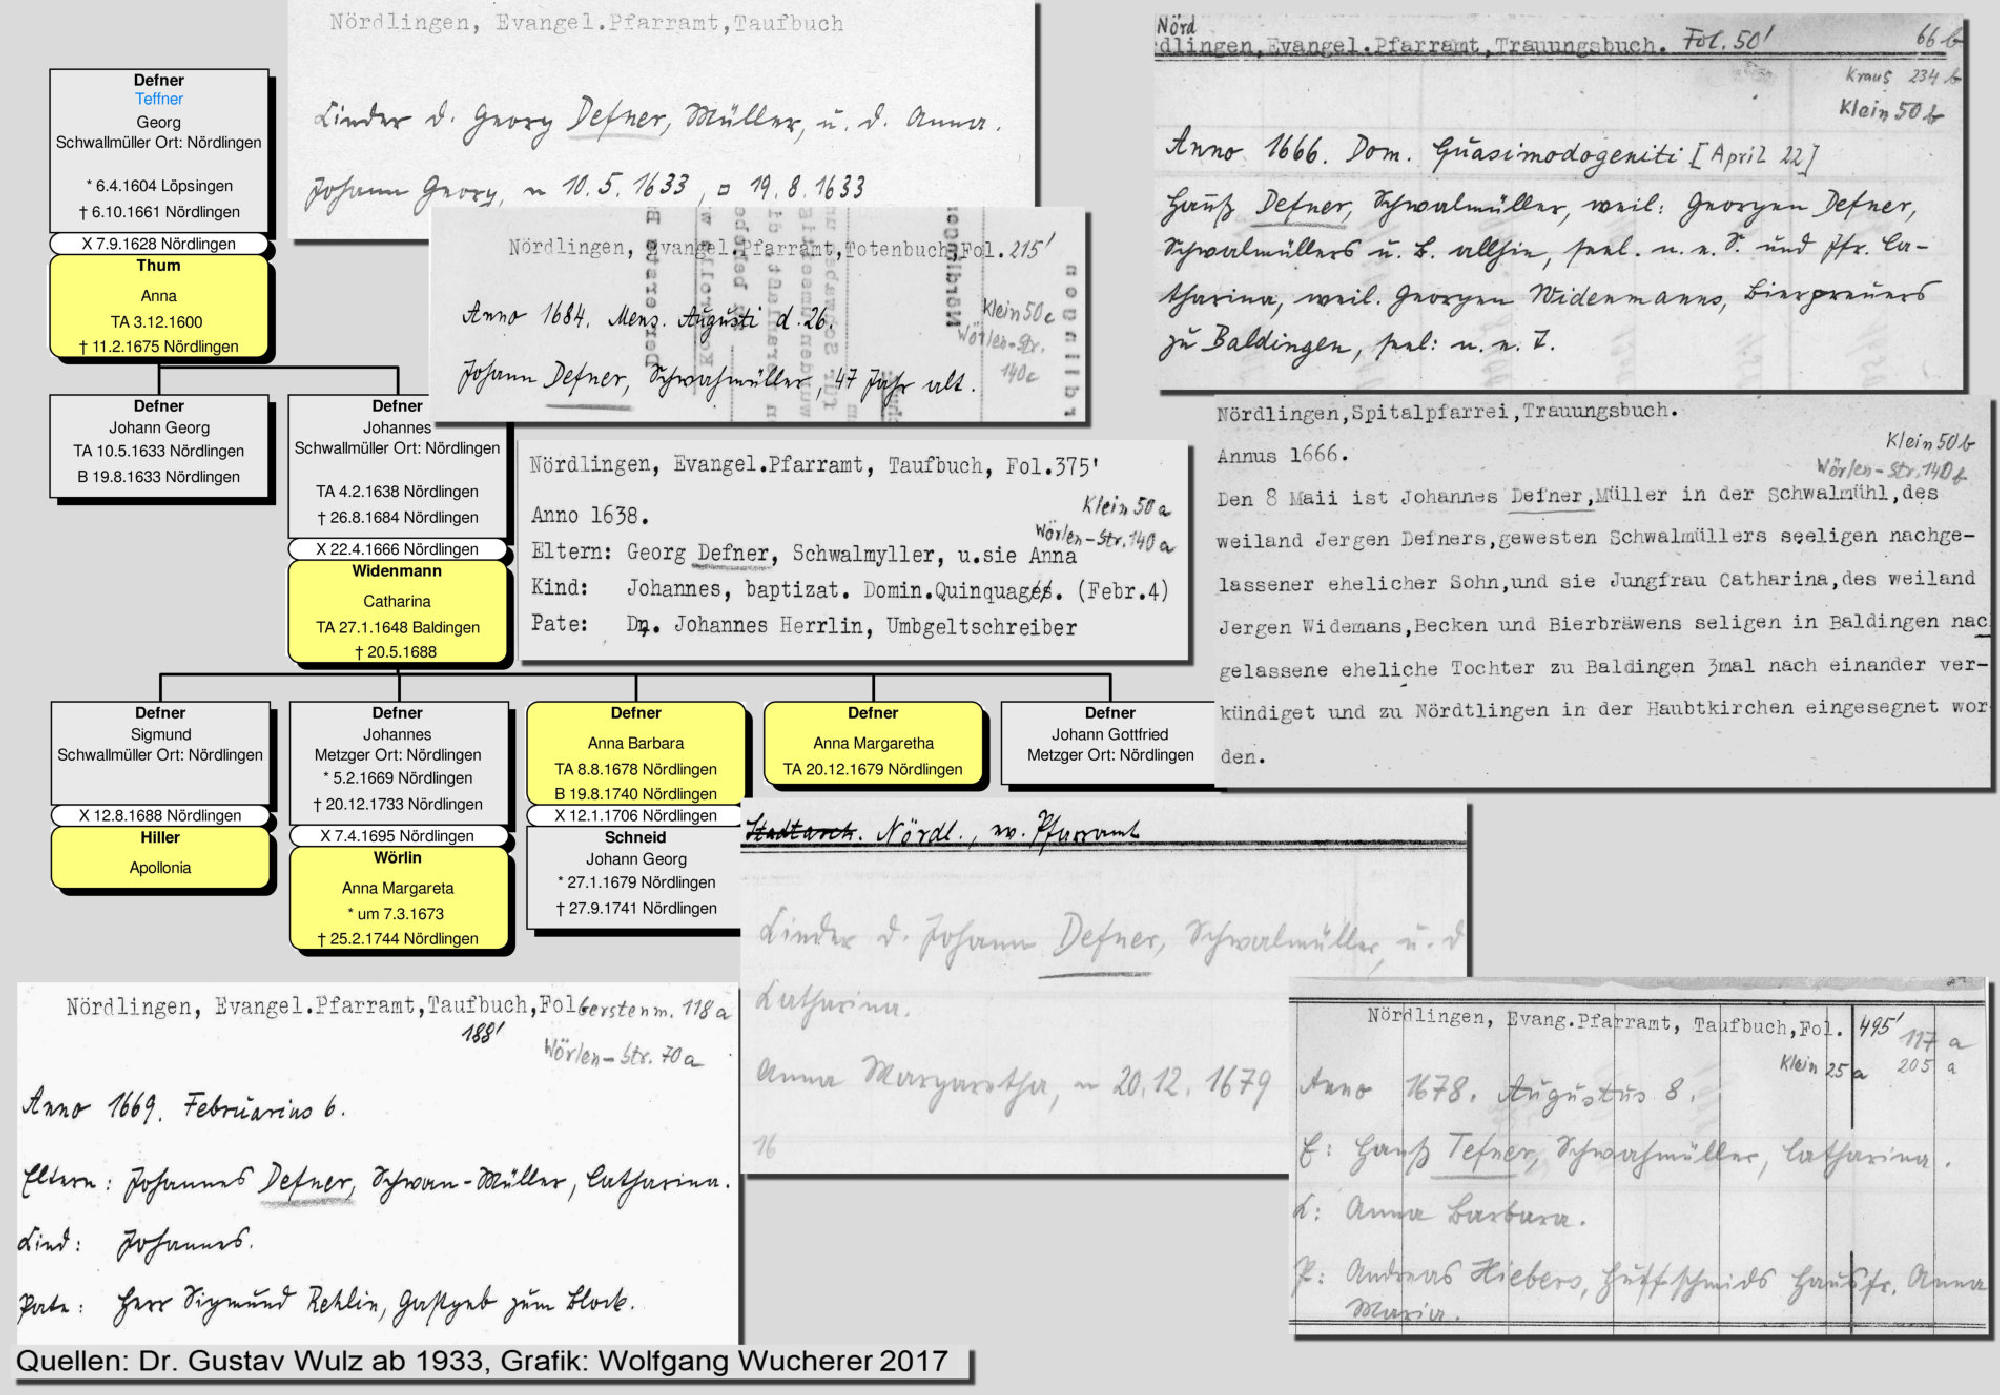 Defner
Teffner
Georg
Schwallmüller Ort: Nördlingen
* 6.4.1604 Löpsingen
† 6.10.1661 Nördlingen
X 7.9.1628 Nördlingen
Thum
Anna
TA 3.12.1600
† 11.2.1675 Nördlingen
Defner
Johann Georg
TA 10.5.1633 Nördlingen
B 19.8.1633 Nördlingen
Defner
Johannes
Schwallmüller Ort: Nördlingen
TA 4.2.1638 Nördlingen
† 26.8.1684 Nördlingen
X 22.4.1666 Nördlingen
Widenmann
Catharina
TA 27.1.1648 Baldingen
† 20.5.1688
Defner
Sigmund
Schwallmüller Ort: Nördlingen
X 12.8.1688 Nördlingen
Hiller
Apollonia
Defner
Johannes
Metzger Ort: Nördlingen
* 5.2.1669 Nördlingen
† 20.12.1733 Nördlingen
X 7.4.1695 Nördlingen
Wörlin
Anna Margareta
* um 7.3.1673
† 25.2.1744 Nördlingen
Defner
Anna Barbara
TA 8.8.1678 Nördlingen
B 19.8.1740 Nördlingen
X 12.1.1706 Nördlingen
Schneid
Johann Georg
* 27.1.1679 Nördlingen
† 27.9.1741 Nördlingen
Defner
Anna Margaretha
TA 20.12.1679 Nördlingen
Defner
Johann Gottfried
Metzger Ort: Nördlingen
Nördlingen, Evangel.Pfarramt,Taufbuch
Kinder d. Georg Defner, Müller, u. d. Anna.
Johann Georg, ~ 10.5.1633, □ 19.8.1633
Nördlingen, Evangel.Pfarramt,Totenbuch,Fol.215'
Klein 50c
Wörlen-Str.
140c
Anno 1684. Mens. Augusti d. 26.
Johann Defner, Schwahmüller, 47 Jahr alt.
Nördlingen, Evangel.Pfarramt, Taufbuch, Fol.375'
Klein 50a
Anno 1638.
Wörlen-Str. 140a
Eltern: Georg Defner, Schwalmyller, u.sie Anna
Kind: Johannes, baptizat. Domin.Quinquages. (Febr.4)
Pate: Dn. Johannes Herrlin, Umbgeltschreiber
Nörd
dlingen,Evangel.Pfarramt,Trauungsbuch. Fol. 50' 66b
Kraus 234b
Klein 50b
Anno 1666. Dom. Quasimodogeniti [April 22]
Hanß Defner, Schwalmüller, weil: Georgen Defner,
Schwalmüllers u. B. allhie, seel. u. e. S. und Jfr. Ca-
tharina, weil. Georgen Widenmanns, Bierpreuers
zu Baldingen, seel: u. e. T.
Nördlingen,Spitalpfarrei,Trauungsbuch.
Klein 50b
Annus 1666.
Wörlen-Str. 140b
Den 8 Maii ist Johannes Defner,Müller in der Schwalmühl,des
weiland Jergen Defners,gewesten Schwalmüllers seeligen nachge-
lassener ehelicher Sohn,und sie Jungfrau Catharina,des weiland
Jergen Widemans,Becken und Bierbräwens seligen in Baldingen nac
gelassene eheliche Tochter zu Baldingen 3mal nach einander ver-
kündiget und zu Nördtlingen in der Haubtkirchen eingesegnet wor
den.
Stadtarch. Nördl., ev. Pfarramt
Kinder d. Johann Defner, Schwalmüller, u. d
Catharina.
Anna Margaretha, ~ 20.12.1679
16
Nördlingen, Evangel.Pfarramt,Taufbuch,Fol
188'
Gerstenm. 118a
Wörlen-Str. 70a
Anno 1669. Februarius 6.
Eltern: Johannes Defner, Schwan-Müller, Catharina.
Kind: Johannes.
Pate: Herr Sigmund Rehlin, Gastgeb zum Block.
Nördlingen, Evang.Pfarramt, Taufbuch,Fol. 495'
117 a
Klein 25a
205 a
Anno 1678. Augustus 8.
E: Hanß Tefner, Schwahmüller, Catharina.
K: Anna Barbara.
P: Andreas Hiebers, Huffschmids Hausfr. Anna
Maria.
Quellen: Dr. Gustav Wulz ab 1933, Grafik: Wolfgang Wucherer 2017